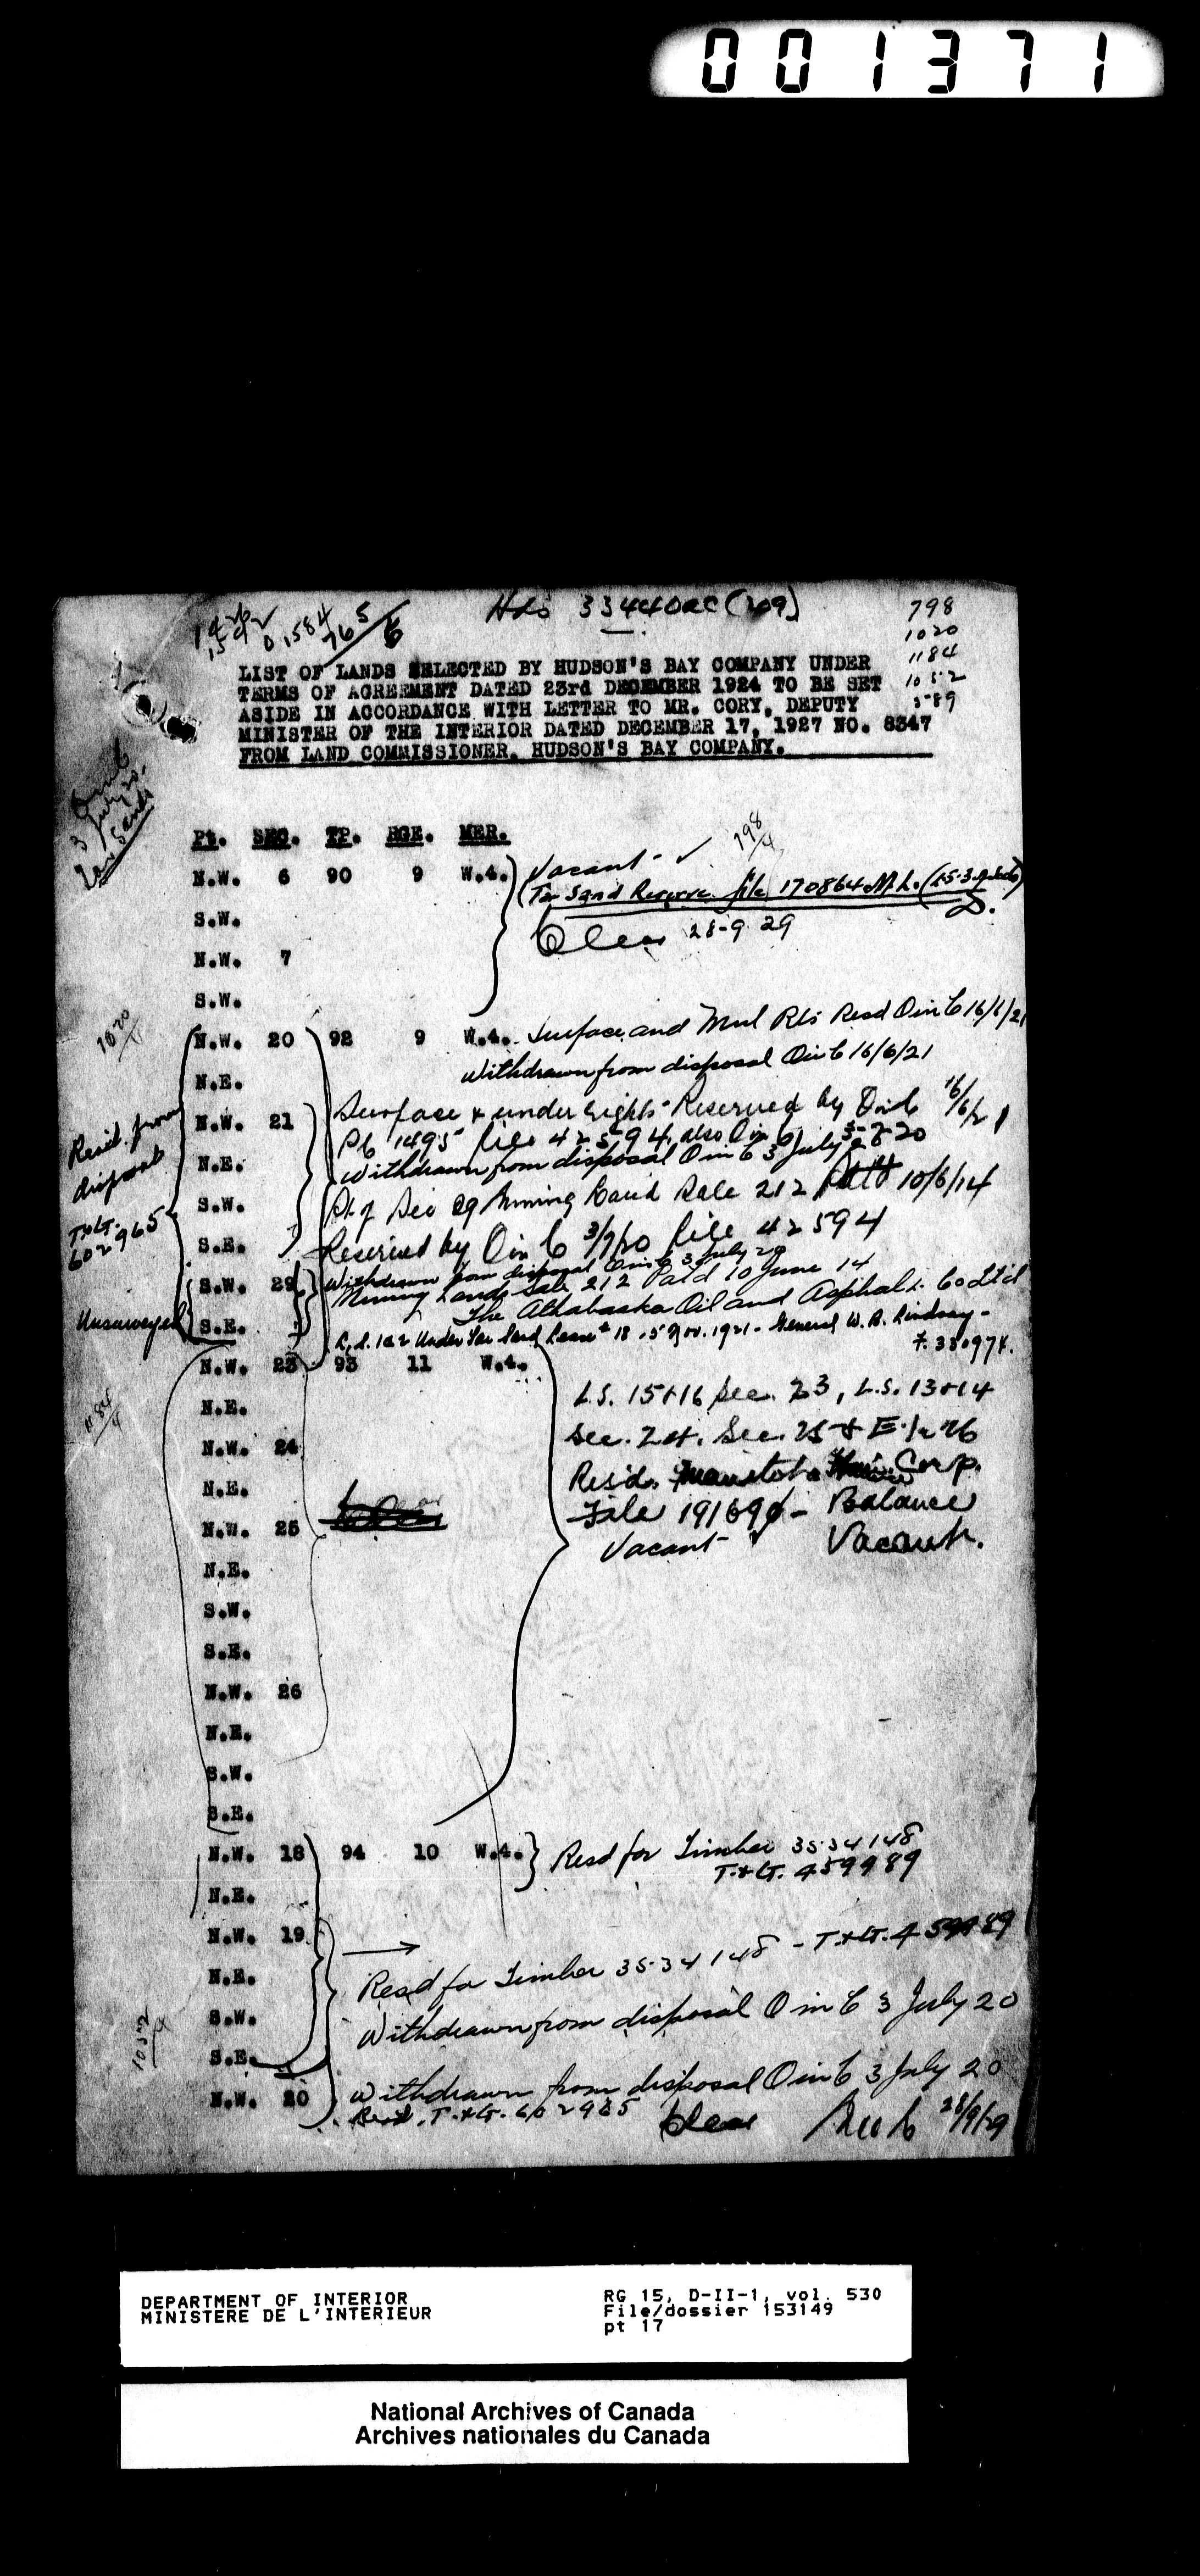 001371
Hds 33440 (109)
798
1020
1184
1052
589
LIST OF LANDS SELECTED BY HUDSON'S BAY COMPANY UNDER
TERMS OF AGREEMENT DATED 23rd DECEMBER 1924 TO BE SET
ASIDE IN ACCORDANCE WITH LETTER TO MR. CORY, DEPUTY
MINISTER OF THE INTERIOR DATED DECEMBER 17, 1927 NO. 8347
FROM LAND COMMISSIONER, HUDSON'S BAY COMPANY.
3 July 20,
Tar Sands
Pt. SEC. TP. RGE. MER.
N.W. 6 90 9 W.4. Vacant - ✓
798/4
(Tar Sand Reserve file 170864 M.L.
S.W.
Clear 28-9 29
N.W. 7
S.W.
1020/1
N.W. 20 92 9 W.4. Surface and Mnl Rts Resd O in C 16/6/21
Withdrawn from disposal O in C 16/6/21
N.E.
N.W. 21 Surface & under rights Reserved by O in C 16/6/21
Pc 1495 file 42594, also O in C
Withdrawn from disposal O in C 3 July 20
N.E.
Resd. from
disposal
T&G.
602965
S.W. Pt of Sec 29 Mining Land Sale 212 10/6/14
S.E. Reserved by O in C 3/7/20 file 42594
Withdrawn from disposal O in C 3 July 20
S.W. 29 Mining Lands Sale 212 Patd 10 June 14
The Athabaska Oil and Asphalt Co Ltd
Unsurveyed
S.E. L.S. 1&2 Under Tar Sand Lease # 18 . 5 Nov. 1921 - General W. B. Lindsay -
N.W. 23 93 11 W.4.
L.S. 15+16 Sec. 23, L.S. 13+14
N.E.
1184/4
Sec. 24. Sec. 25 & E ½ 26
N.W. 24
Resd. Manitoba Corp.
N.E.
File 191690 - Balance
N.W. 25
Vacant Vacant.
N.E.
S.W.
S.E.
N.W. 26
N.E.
S.W.
S.E.
N.W. 18 94 10 W.4. Resd for Timber 3534148
T.&G. 459989
N.E.
N.W. 19
Resd for Timber 3534148 - T.&G. 459989
N.E.
S.W. Withdrawn from disposal O in C 3 July 20
1052/4
S.E.
N.W. 20 Withdrawn from disposal O in C 3 July 20
Resd. T.&G. 602965 Clear 28/9/29
DEPARTMENT OF INTERIOR
MINISTERE DE L'INTERIEUR
RG 15, D-II-1, vol. 530
File/dossier 153149
pt 17
National Archives of Canada
Archives nationales du Canada